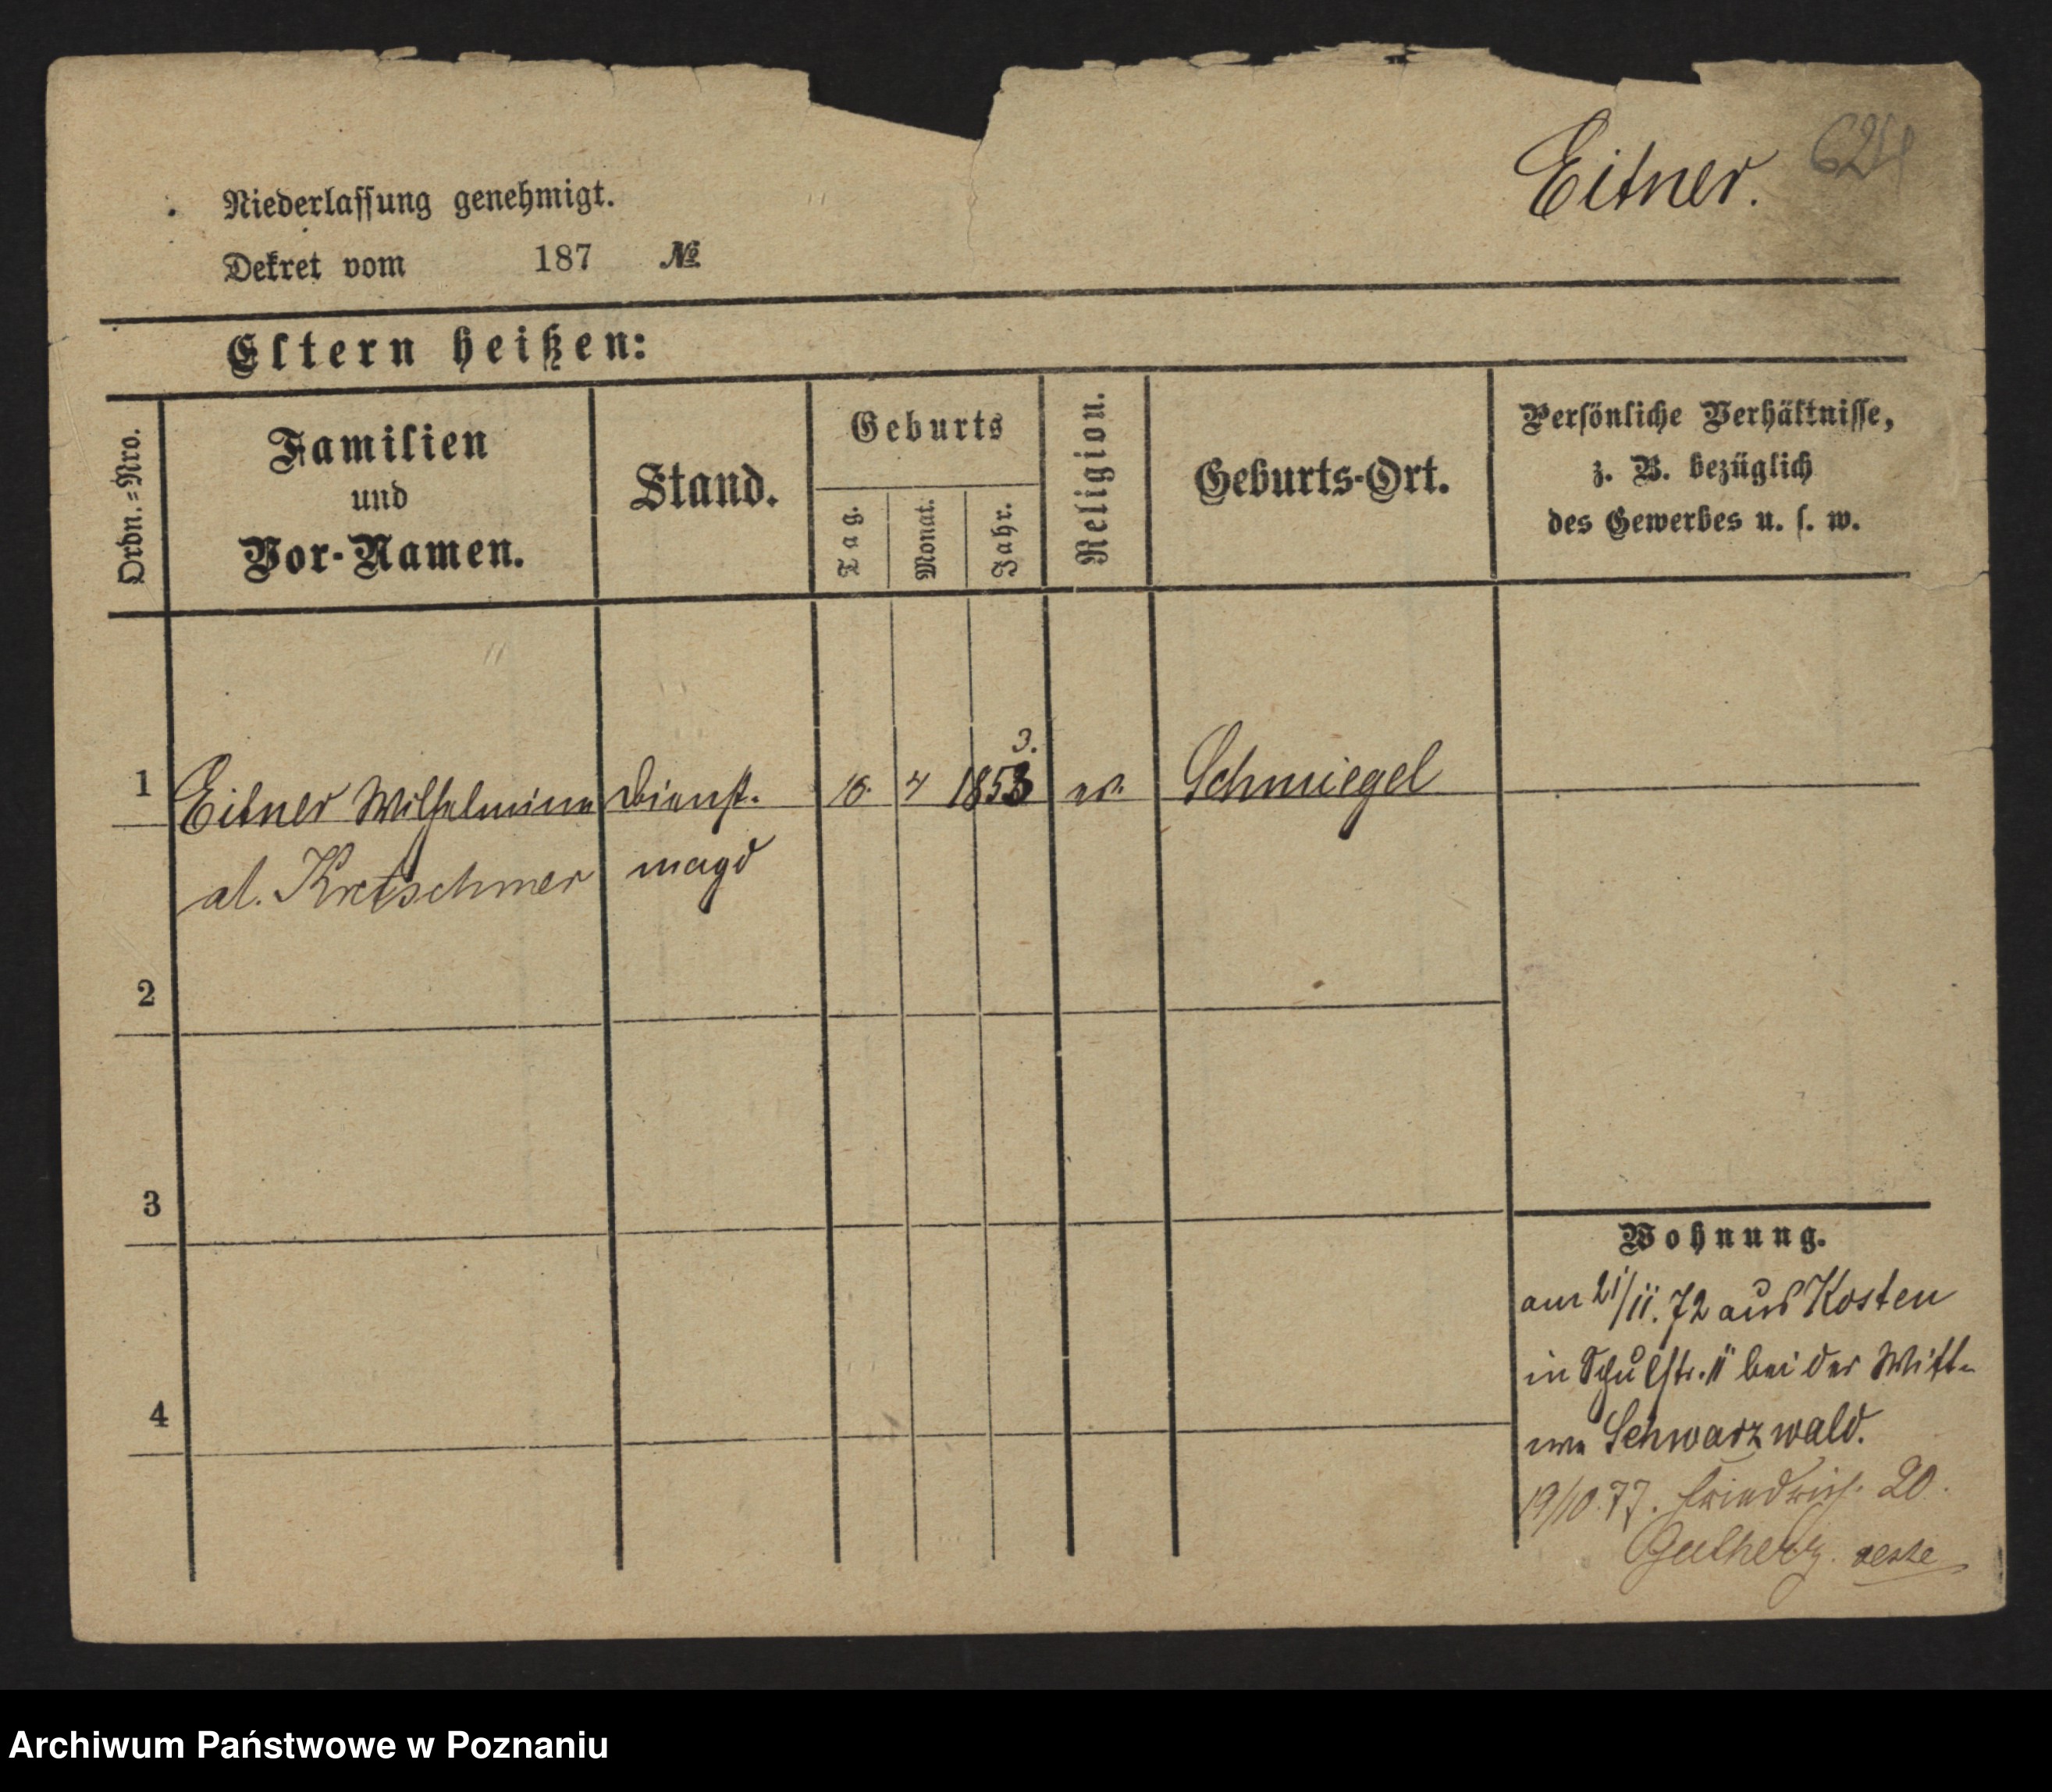 Eitner. 624
Niederlassung genehmigt.
Dekret vom 187 №
Eltern heißen:
Ordn.=Nro.
Familien
und
Vor-Namen.
Stand.
Geburts
Tag.
Monat.
Jahr.
Religion.
Geburts-Ort.
Persönliche Verhältnisse,
z. B. bezüglich
des Gewerbes u. s. w.
3.
1 Eitner Wilhelmine Dienst- 4 1853 ev. Schmiegel
al. Kretschmer magd
2
3
4
Wohnung.
am 21/11. 72 aus Kosten
in Schulstr. 11 bei der Witt-
we Schwarzwald.
19/10. 77. Friedrich. 20.
Archiwum Państwowe w Poznaniu